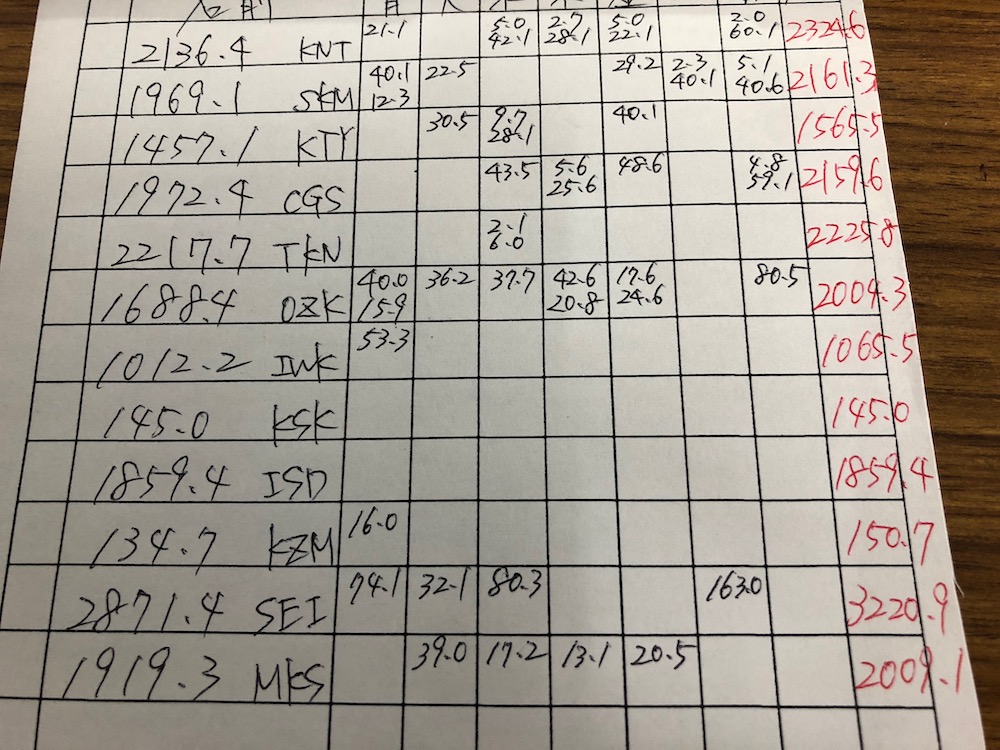 2136.4 KNT 21.1 5.0 2.7 5.0 2.0 2324.6
42.1 28.1 22.1 60.1
1969.1 SKM 40.1 22.5 29.2 2.3 5.1 2161.3
12.3 40.1 40.6
1457.1 KTY 30.5 9.7 40.1 1565.5
28.1
1972.4 CGS 43.5 5.6 48.6 4.8 2159.6
25.6 59.1
2217.7 TKN 2.1 2225.8
6.0
1688.4 OZK 40.0 36.2 37.7 42.6 17.6 80.5 2004.3
15.9 20.8 24.6
1012.2 IWK 53.3 1065.5
145.0 KSK 145.0
1859.4 ISD 1859.4
134.7 KZM 16.0 150.7
2871.4 SEI 74.1 32.1 80.3 163.0 3220.9
1919.3 MKS 39.0 17.2 13.1 20.5 2009.1